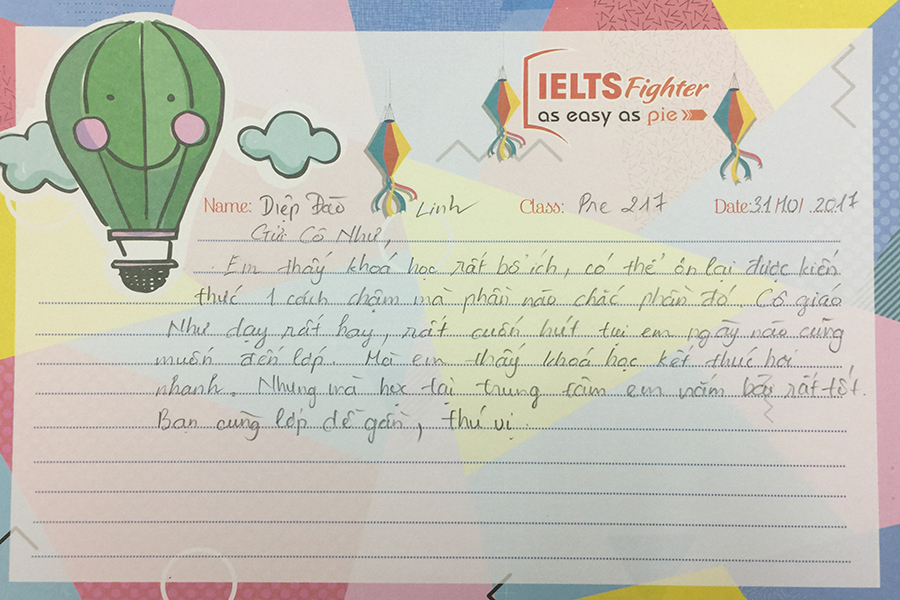 IELTS Fighter
as easy as pie
Name: Diệp Đào Linh Class: Pre 217 Date: 31/10/2017
Gửi Cô Như,
Em thấy khoá học rất bổ ích, có thể ôn lại được kiến
thức 1 cách chậm mà phần nào chắc phần đó. Cô giáo
Như dạy rất hay, rất cuốn hút tụi em ngày nào cũng
muốn đến lớp. Mà em thấy khoá học kết thúc hơi
nhanh. Nhưng mà học tại trung tâm em nắm bài rất tốt.
Bạn cùng lớp dễ gần, thú vị.